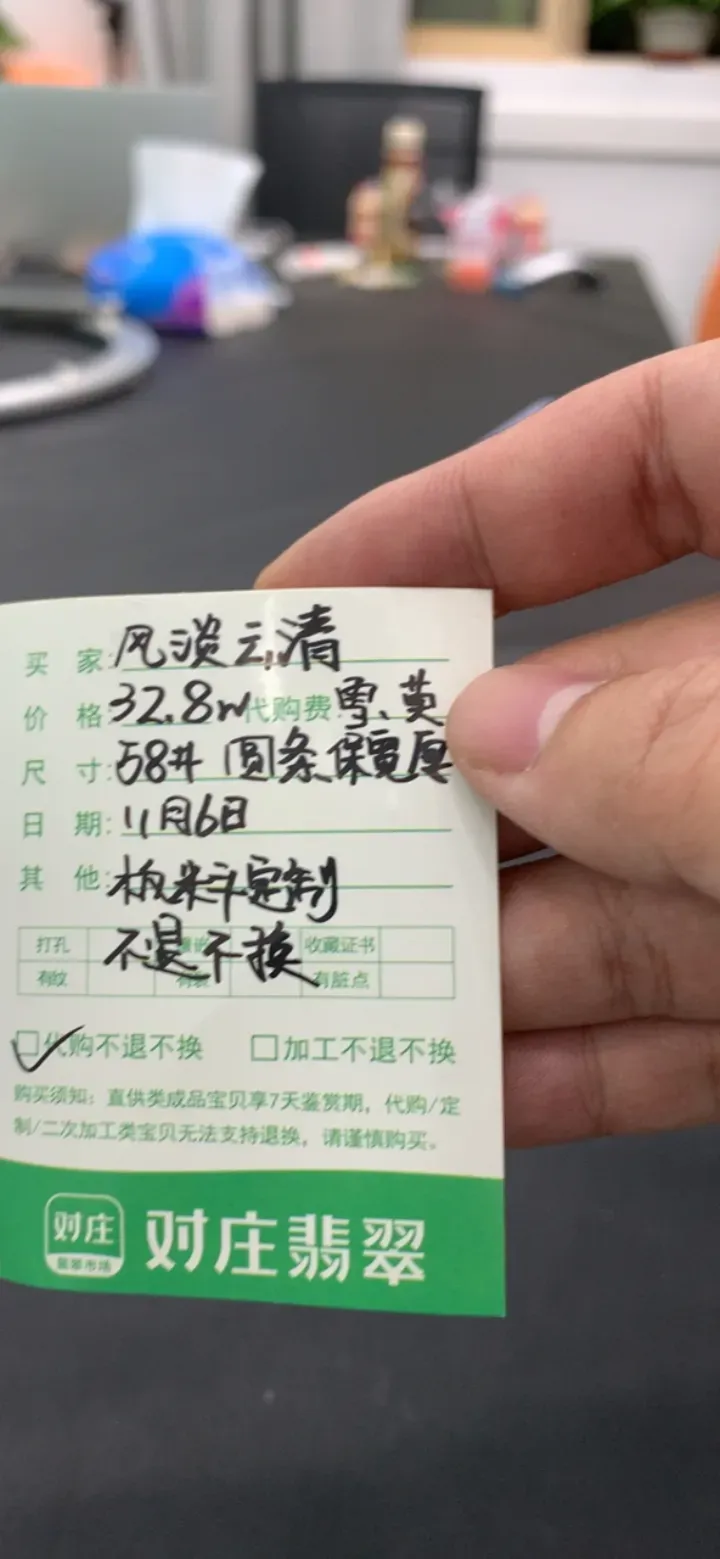 买 家: 风淡云清
价 格: 32.8w 代购费: 雪、黄
尺 寸: 58# 圆条 保宽厚
日 期: 11月6日
其 他: 板料定制
不退不换
打孔 收藏证书
有纹 有裂 有脏点
代购不退不换 加工不退不换
购买须知：直供类成品宝贝享7天鉴赏期，代购/定
制/二次加工类宝贝无法支持退换，请谨慎购买。
对庄
翡翠市场
对庄翡翠